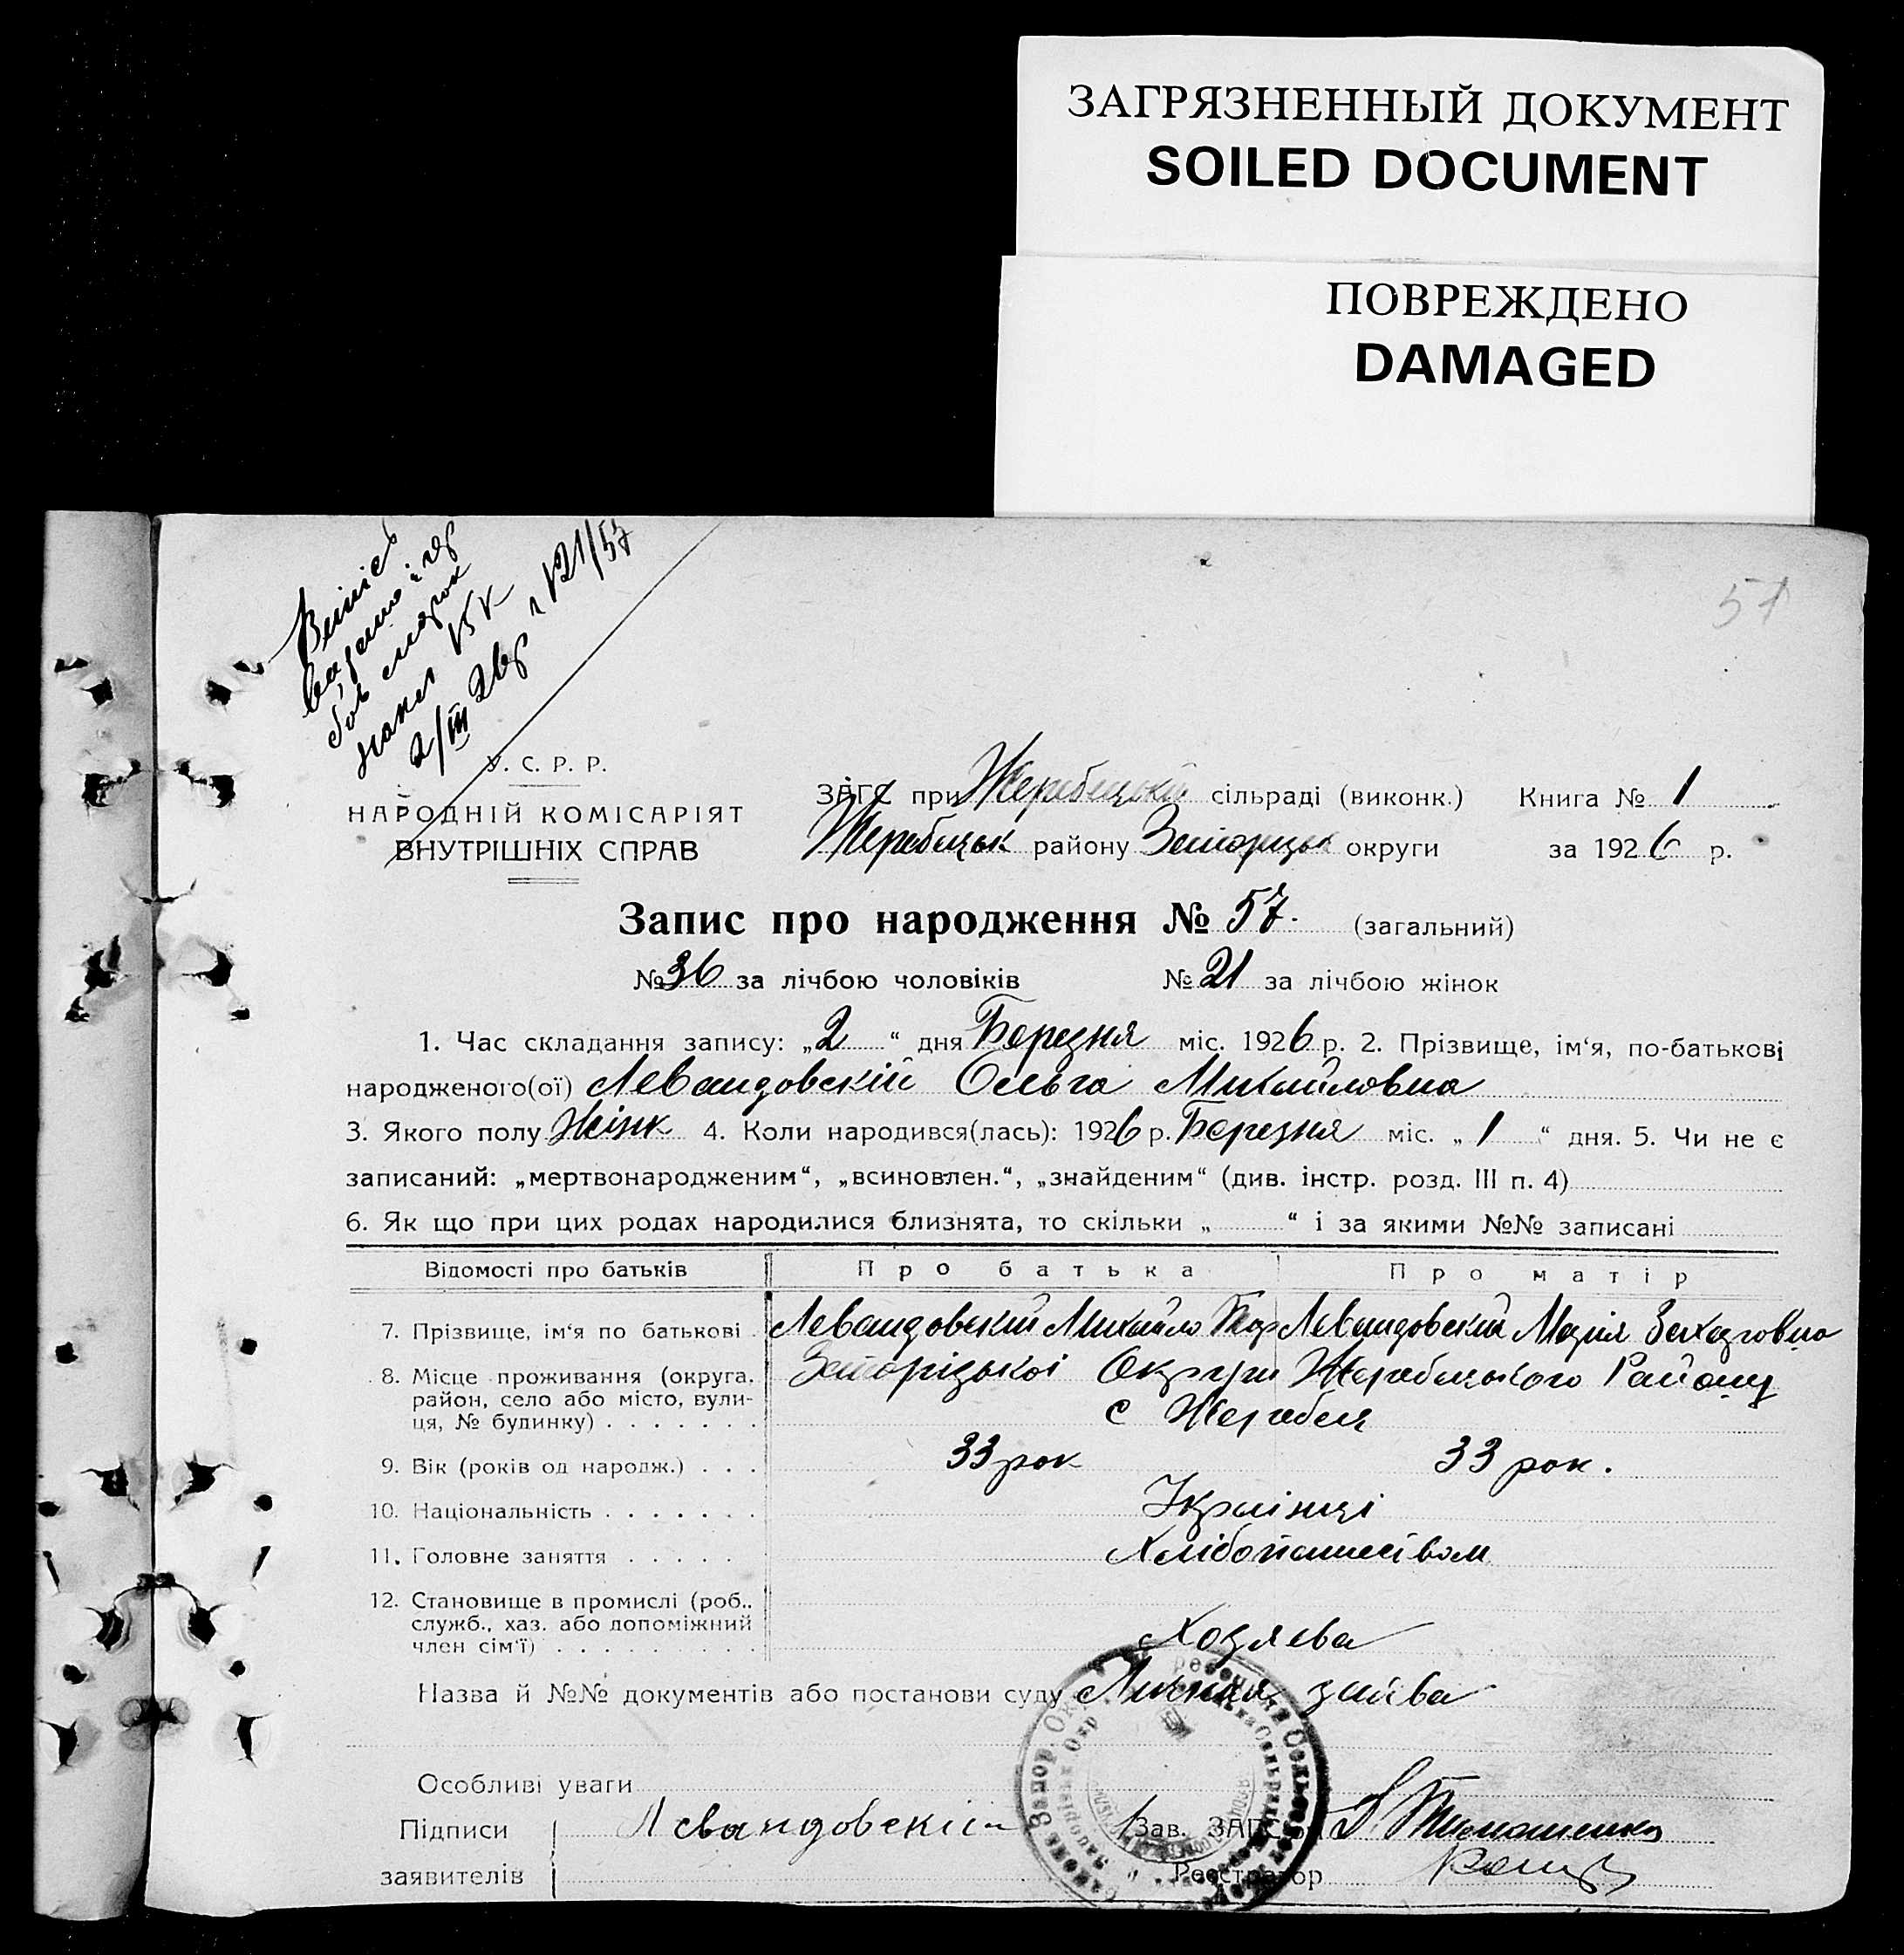 ЗАГРЯЗНЕННЫЙ ДОКУМЕНТ
SOILED DOCUMENT
ПОВРЕЖДЕНО
DAMAGED
57
2/III 26р n 21/57
У. С. Р. Р.
НАРОДНІЙ КОМІСАРІЯТ
ВНУТРІШНІХ СПРАВ
ЗАГС при Жеребецькій сільраді (виконк.) Книга № 1
Жеребецьк району Запорізьк округи за 1926 р.
Запис про народження № 57. (загальний)
№ 36 за лічбою чоловіків № 21 за лічбою жінок
1. Час складання запису: „2“ дня Березня міс. 1926 р. 2. Прізвище, ім‘я, по-батькові
народженого(ої) Левандовскій Ольга Михайловна
3. Якого полу Жінк 4. Коли народився(лась): 1926 р. Березня міс. „1“ дня. 5. Чи не є
записаний: „мертвонародженим“, „всиновлен.“, „знайденим“ (див. інстр. розд. III п. 4)
6. Як що при цих родах народилися близнята, то скільки „ “ і за якими №№ записані
Відомості про батьків Про батька Про матір
7. Прізвище, ім‘я по батькові Левандовский Михайло Левандовский Марія Захаровна
8. Місце проживання (округа, Запорізькоі Округи Жеребецького Району
район, село або місто, вули- с Жеребець
ця, № будинку)
9. Вік (років од народж.) 33 рок 33 рок.
10. Національність Українці
11. Головне заняття Хлібопашеством
12. Становище в промислі (роб.,
служб., хаз. або допоміжний
член сім‘ї) Хозяева
Назва й №№ документів або постанови суду Личная заява
Особливі уваги
Підписи Левандовский Зав. ЗАГС‘ом Тимошенко
заявителів Реєстратор